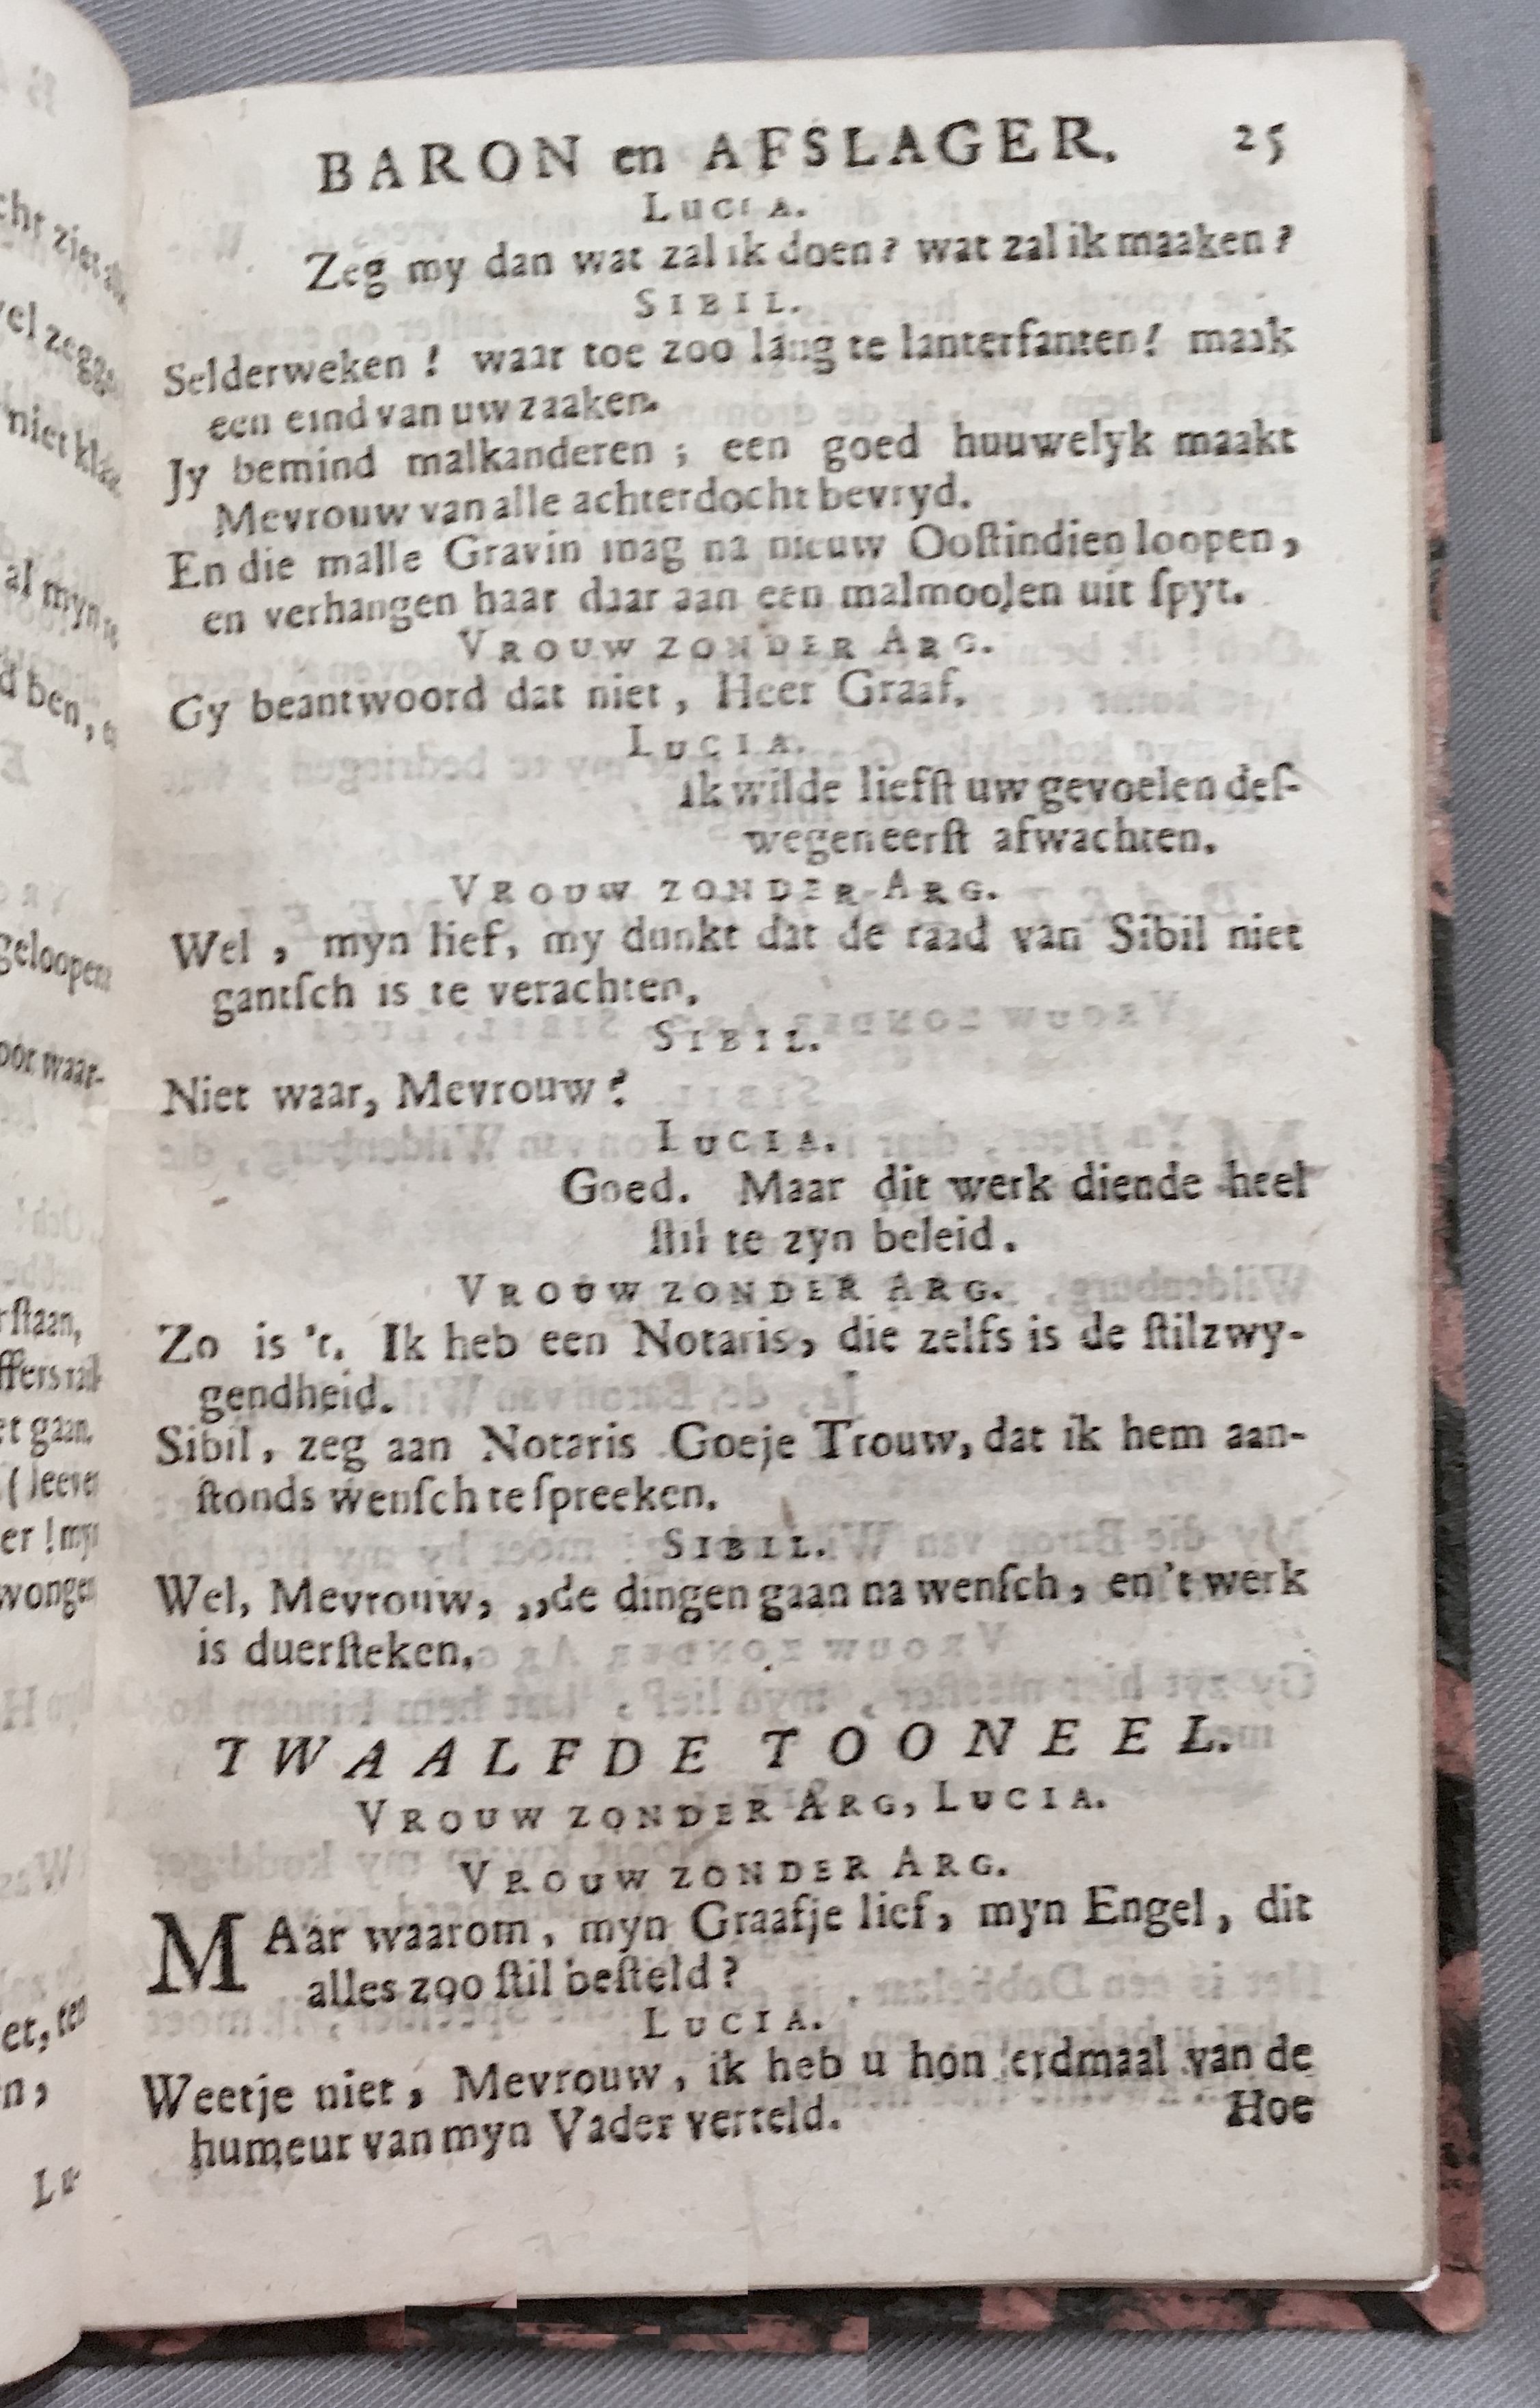 BARON en AFSLAGER. 25
LUCIA.
Zeg my dan wat zal ik doen? wat zal ik maaken?
SIBIL.
Selderweken! waar toe zoo lang te lanterfanten! maak
een eind van uw zaaken.
Jy bemind malkanderen; een goed huuwelyk maakt
Mevrouw van alle achterdocht bevryd.
En die malle Gravin mag na nieuw Ooſtindien loopen,
en verhangen haar daar aan een malmoolen uit ſpyt.
VROUW ZONDER ARG.
Gy beantwoord dat niet, Heer Graaf.
LUCIA.
Ik wilde liefſt uw gevoelen deſ-
wegen eerſt afwachten.
VROUW ZONDER-ARG.
Wel, myn lief, my dunkt dat de raad van Sibil niet
gantſch is te verachten.
SIBIL.
Niet waar, Mevrouw?
LUCIA.
Goed. Maar dit werk diende heel
ſtil te zyn beleid.
VROUW ZONDER ARG.
Zo is 't. Ik heb een Notaris, die zelfs is de ſtilzwy-
gendheid.
Sibil, zeg aan Notaris Goeje Trouw, dat ik hem aan-
ſtonds wenſch te ſpreeken.
SIBIL.
Wel, Mevrouw, ,,de dingen gaan na wenſch, en 't werk
is duerſteken.
TWAALFDE TOONEEL.
VROUW ZONDER ARG, LUCIA.
VROUW ZONDER ARG.
MAar waarom, myn Graafje lief, myn Engel, dit
alles zoo ſtil beſteld?
LUCIA.
Weetje niet, Mevrouw, ik heb u honderdmaal van de
humeur van myn Vader verteld.
Hoe